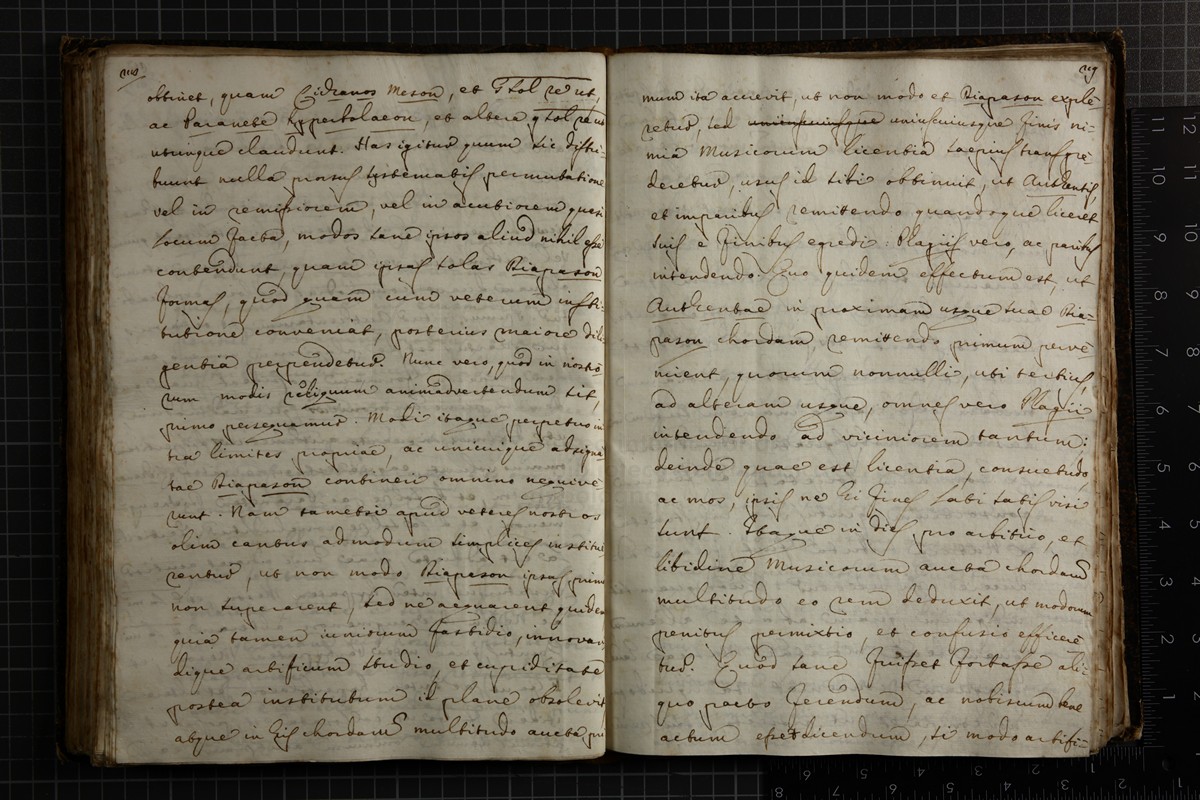 118
obtinet, quam Lichanos Meson, et G sol re ut,
ac Paranete Hyperbolaeon, et altera g sol re ut
utrinque claudunt. Has igitur quum sic distri-
buunt nulla prorsus systematis permutatione
vel in remissiorem, vel in acutiorem quasi
locum facta, modos sane ipsos aliud nihil esse
contendunt, quam ipsas solas Diapason
formas, quod quam cum veterum insti-
tutione conveniat, posterius maiore dili
gentia perpendetur. Nunc vero, quod in nostro
rum modis reliquum animadvertendum sit,
primo persequamur. Modi itaque perpetuo in
tra limites propriae, ac unicuique adsigna
tae Diapason contineri omnino nequive
runt. Nam tametsi apud veteres nostros
olim cantus admodum simplices institue
rentur, ut non modo Diapason ipsas primo
non superarent, sed ne aequarent quidem
quia tamen iuniorum fastidio, innovan
dique artificum studio, et cupiditate
postea institutum id plane obsolevit
atque in his chordarum multitudo aucta pri
119
mum ita accrevit, ut non modo et Diapason explé
retur, sed uniuscuiusque uniuscuiusque finis ni-
mia Musicorum licentia saepius transgre
deretur, usus id sibi obtinuit, ut Authentis,
et imparibus remittendo quandoque liceret
suis e finibus egredi: Plagiis vero, ac paribus
intendendo. Quo quidem effectum est, ut
Authentae in proximam usque suae Dia-
pason chordam, remittendo primum perve
nirent, quorum nonnulli, uti tertius,
ad alteram usque, omnes vero Plagii
intendendo ad viciniorem tantum:
deinde quae est licentia, consuetudo
ac mos, ipsis ne hi fines satis visi
sunt. Itaque in dies pro arbitrio, et
libidine Musicorum aucta chordarum
multitudo eo rem deduxit, ut modorum
penitus permixtio, et confusio efficere
tur. Quod sane fuisset fortasse ali-
quo pacto ferendum, ac nobiscum bene
actum esset dicendum, si modo artifi-